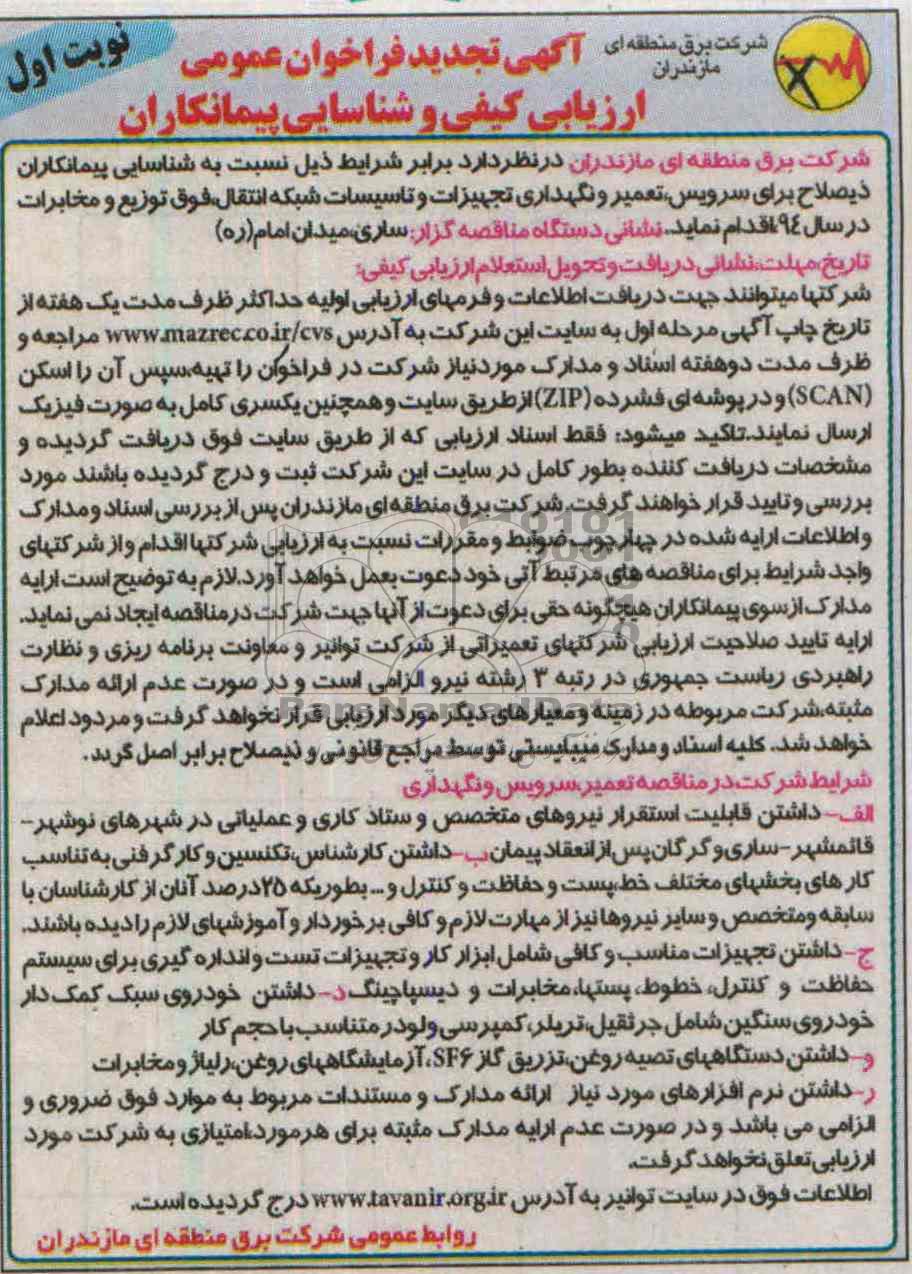 نوبت اول
شرکت برق منطقه ای
مازندران
آگهی تجدید فراخوان عمومی
ارزیابی کیفی و شناسایی پیمانکاران
شرکت برق منطقه ای مازندران درنظردارد برابر شرایط ذیل نسبت به شناسایی پیمانکاران
ذیصلاح برای سرویس،تعمیر و نگهداری تجهیزات و تاسیسات شبکه انتقال،فوق توزیع و مخابرات
در سال ۹۴،اقدام نماید. نشانی دستگاه مناقصه گزار: ساری،میدان امام(ره)
تاریخ،مهلت،نشانی دریافت و تحویل استعلام ارزیابی کیفی:
شرکتها میتوانند جهت دریافت اطلاعات و فرمهای ارزیابی اولیه حداکثر ظرف مدت یک هفته از
تاریخ چاپ آگهی مرحله اول به سایت این شرکت به آدرس www.mazrec.co.ir/cvs مراجعه و
ظرف مدت دوهفته اسناد و مدارک موردنیاز شرکت در فراخوان را تهیه،سپس آن را اسکن
(SCAN) و در پوشه ای فشرده (ZIP) ازطریق سایت و همچنین یکسری کامل به صورت فیزیک
ارسال نمایند.تاکید میشود: فقط اسناد ارزیابی که از طریق سایت فوق دریافت گردیده و
مشخصات دریافت کننده بطور کامل در سایت این شرکت ثبت و درج گردیده باشند مورد
بررسی و تایید قرار خواهند گرفت. شرکت برق منطقه ای مازندران پس از بررسی اسناد و مدارک
و اطلاعات ارایه شده در چهارچوب ضوابط و مقررات نسبت به ارزیابی شرکتها اقدام و از شرکتهای
واجد شرایط برای مناقصه های مرتبط آتی خود دعوت بعمل خواهد آورد.لازم به توضیح است ارایه
مدارک ازسوی پیمانکاران هیچگونه حقی برای دعوت از آنها جهت شرکت در مناقصه ایجاد نمی نماید.
ارایه تایید صلاحیت ارزیابی شرکتهای تعمیراتی از شرکت توانیر و معاونت برنامه ریزی و نظارت
راهبردی ریاست جمهوری در رتبه ۳ رشته نیرو الزامی است و در صورت عدم ارائه مدارک
مثبته،شرکت مربوطه در زمینه و معیارهای دیگر مورد ارزیابی قرار نخواهد گرفت و مردود اعلام
خواهد شد. کلیه اسناد و مدارک میبایستی توسط مراجع قانونی و ذیصلاح برابر اصل گردد.
شرایط شرکت در مناقصه تعمیر،سرویس و نگهداری
الف- داشتن قابلیت استقرار نیروهای متخصص و ستاد کاری و عملیاتی در شهرهای نوشهر-
قائمشهر-ساری و گرگان پس از انعقاد پیمان ب-داشتن کارشناس،تکنسین و کارگر فنی به تناسب
کارهای بخشهای مختلف خط،پست و حفاظت و کنترل و ... بطوریکه ۲۵درصد آنان از کارشناسان با
سابقه ومتخصص و سایر نیروها نیز از مهارت لازم و کافی برخوردار و آموزشهای لازم را دیده باشند.
ج-داشتن تجهیزات مناسب و کافی شامل ابزار کار و تجهیزات تست و اندازه گیری برای سیستم
حفاظت و کنترل، خطوط، پستها،مخابرات و دیسپاچینگ د-داشتن خودروی سبک کمک دار
خودروی سنگین شامل جرثقیل،تریلر،کمپرسی ولودر متناسب با حجم کار
و-داشتن دستگاههای تصیه روغن،تزریق گاز SF۶،آزمایشگاههای روغن،رلیاژ و مخابرات
ر-داشتن نرم افزارهای مورد نیاز ارائه مدارک و مستندات مربوط به موارد فوق ضروری و
الزامی می باشد و در صورت عدم ارایه مدارک مثبته برای هرمورد،امتیازی به شرکت مورد
ارزیابی تعلق نخواهد گرفت.
اطلاعات فوق در سایت توانیر به آدرس www.tavanir.org.ir درج گردیده است.
روابط عمومی شرکت برق منطقه ای مازندران
ParsNamadData